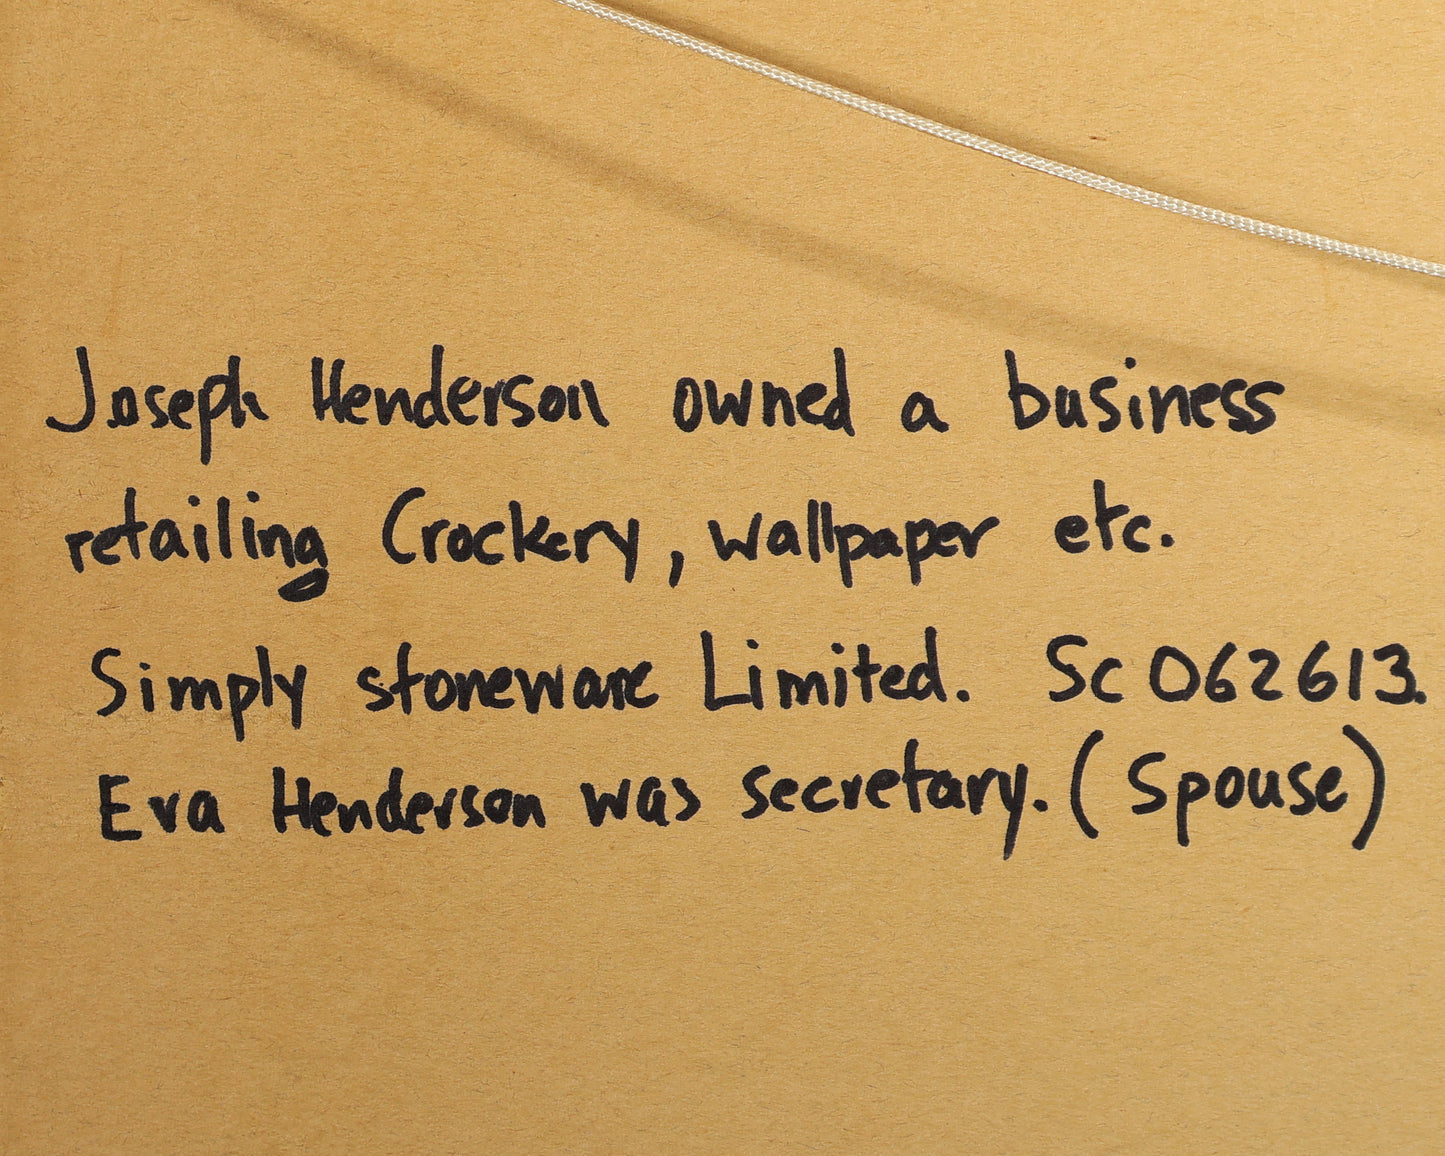 Joseph Henderson owned a business
retailing Crockery, wallpaper etc.
Simply stoneware Limited. Sc 062613.
Eva Henderson was secretary. (Spouse)